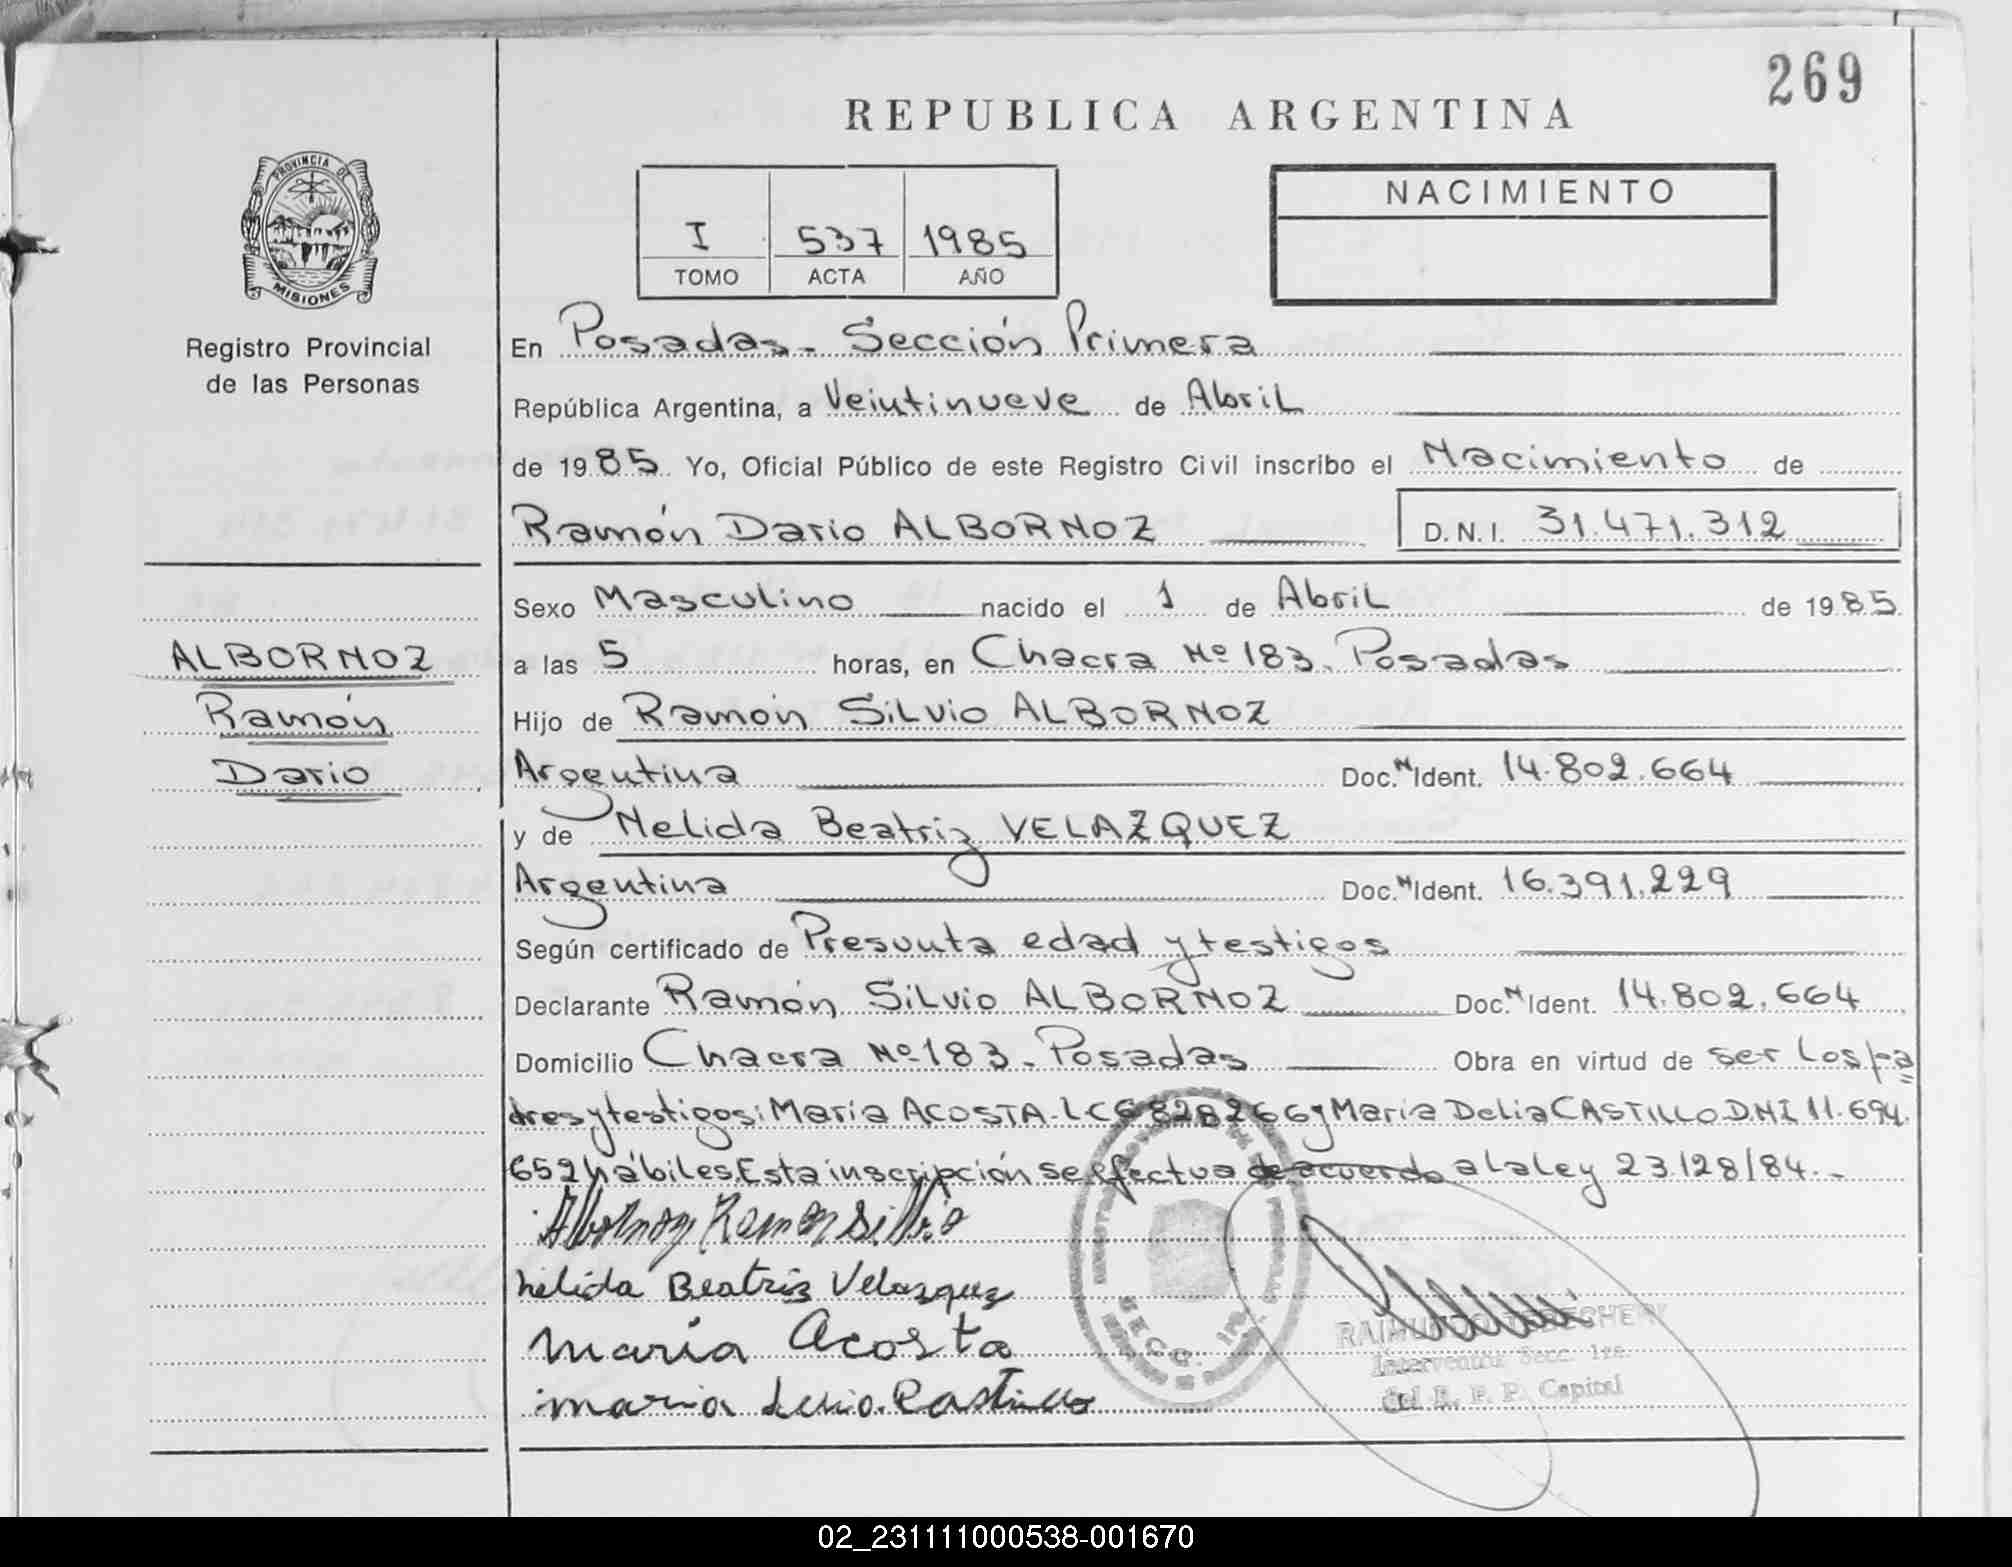 269
REPUBLICA ARGENTINA
PROVINCIA DE
MISIONES
Registro Provincial
de las Personas
I 537 1985
TOMO ACTA AÑO
NACIMIENTO
En Posadas - Sección Primera
República Argentina, a Veintinueve de Abril
de 1985. Yo, Oficial Público de este Registro Civil inscribo el Nacimiento de
Ramón Dario ALBORNOZ D.N.I. 31.471.312
Sexo Masculino nacido el 1 de Abril de 1985
ALBORNOZ
Ramón
Dario
a las 5 horas, en Chacra Nº 183. Posadas
Hijo de Ramón Silvio ALBORNOZ
Argentina Doc. N Ident. 14.802.664
y de Nelida Beatriz VELAZQUEZ
Argentina Doc. N Ident. 16.391.229
Según certificado de Presunta edad y testigos
Declarante Ramón Silvio ALBORNOZ Doc. N Ident. 14.802.664
Domicilio Chacra Nº 183 - Posadas Obra en virtud de ser los pa=
dres y testigos: María ACOSTA - LC 6828266 y María Delia CASTILLO D.N.I 11.694.
652 hábiles. Esta inscripción se efectua de acuerdo a la ley 23.128/84.-
Albornoz Ramon Silvio
Nelida Beatriz Velazquez
maria Acosta
maria Delia Castillo
SECC. 1ra.
Interventor Secc. 1ra.
del R. P. P. Capital
02_231111000538-001670